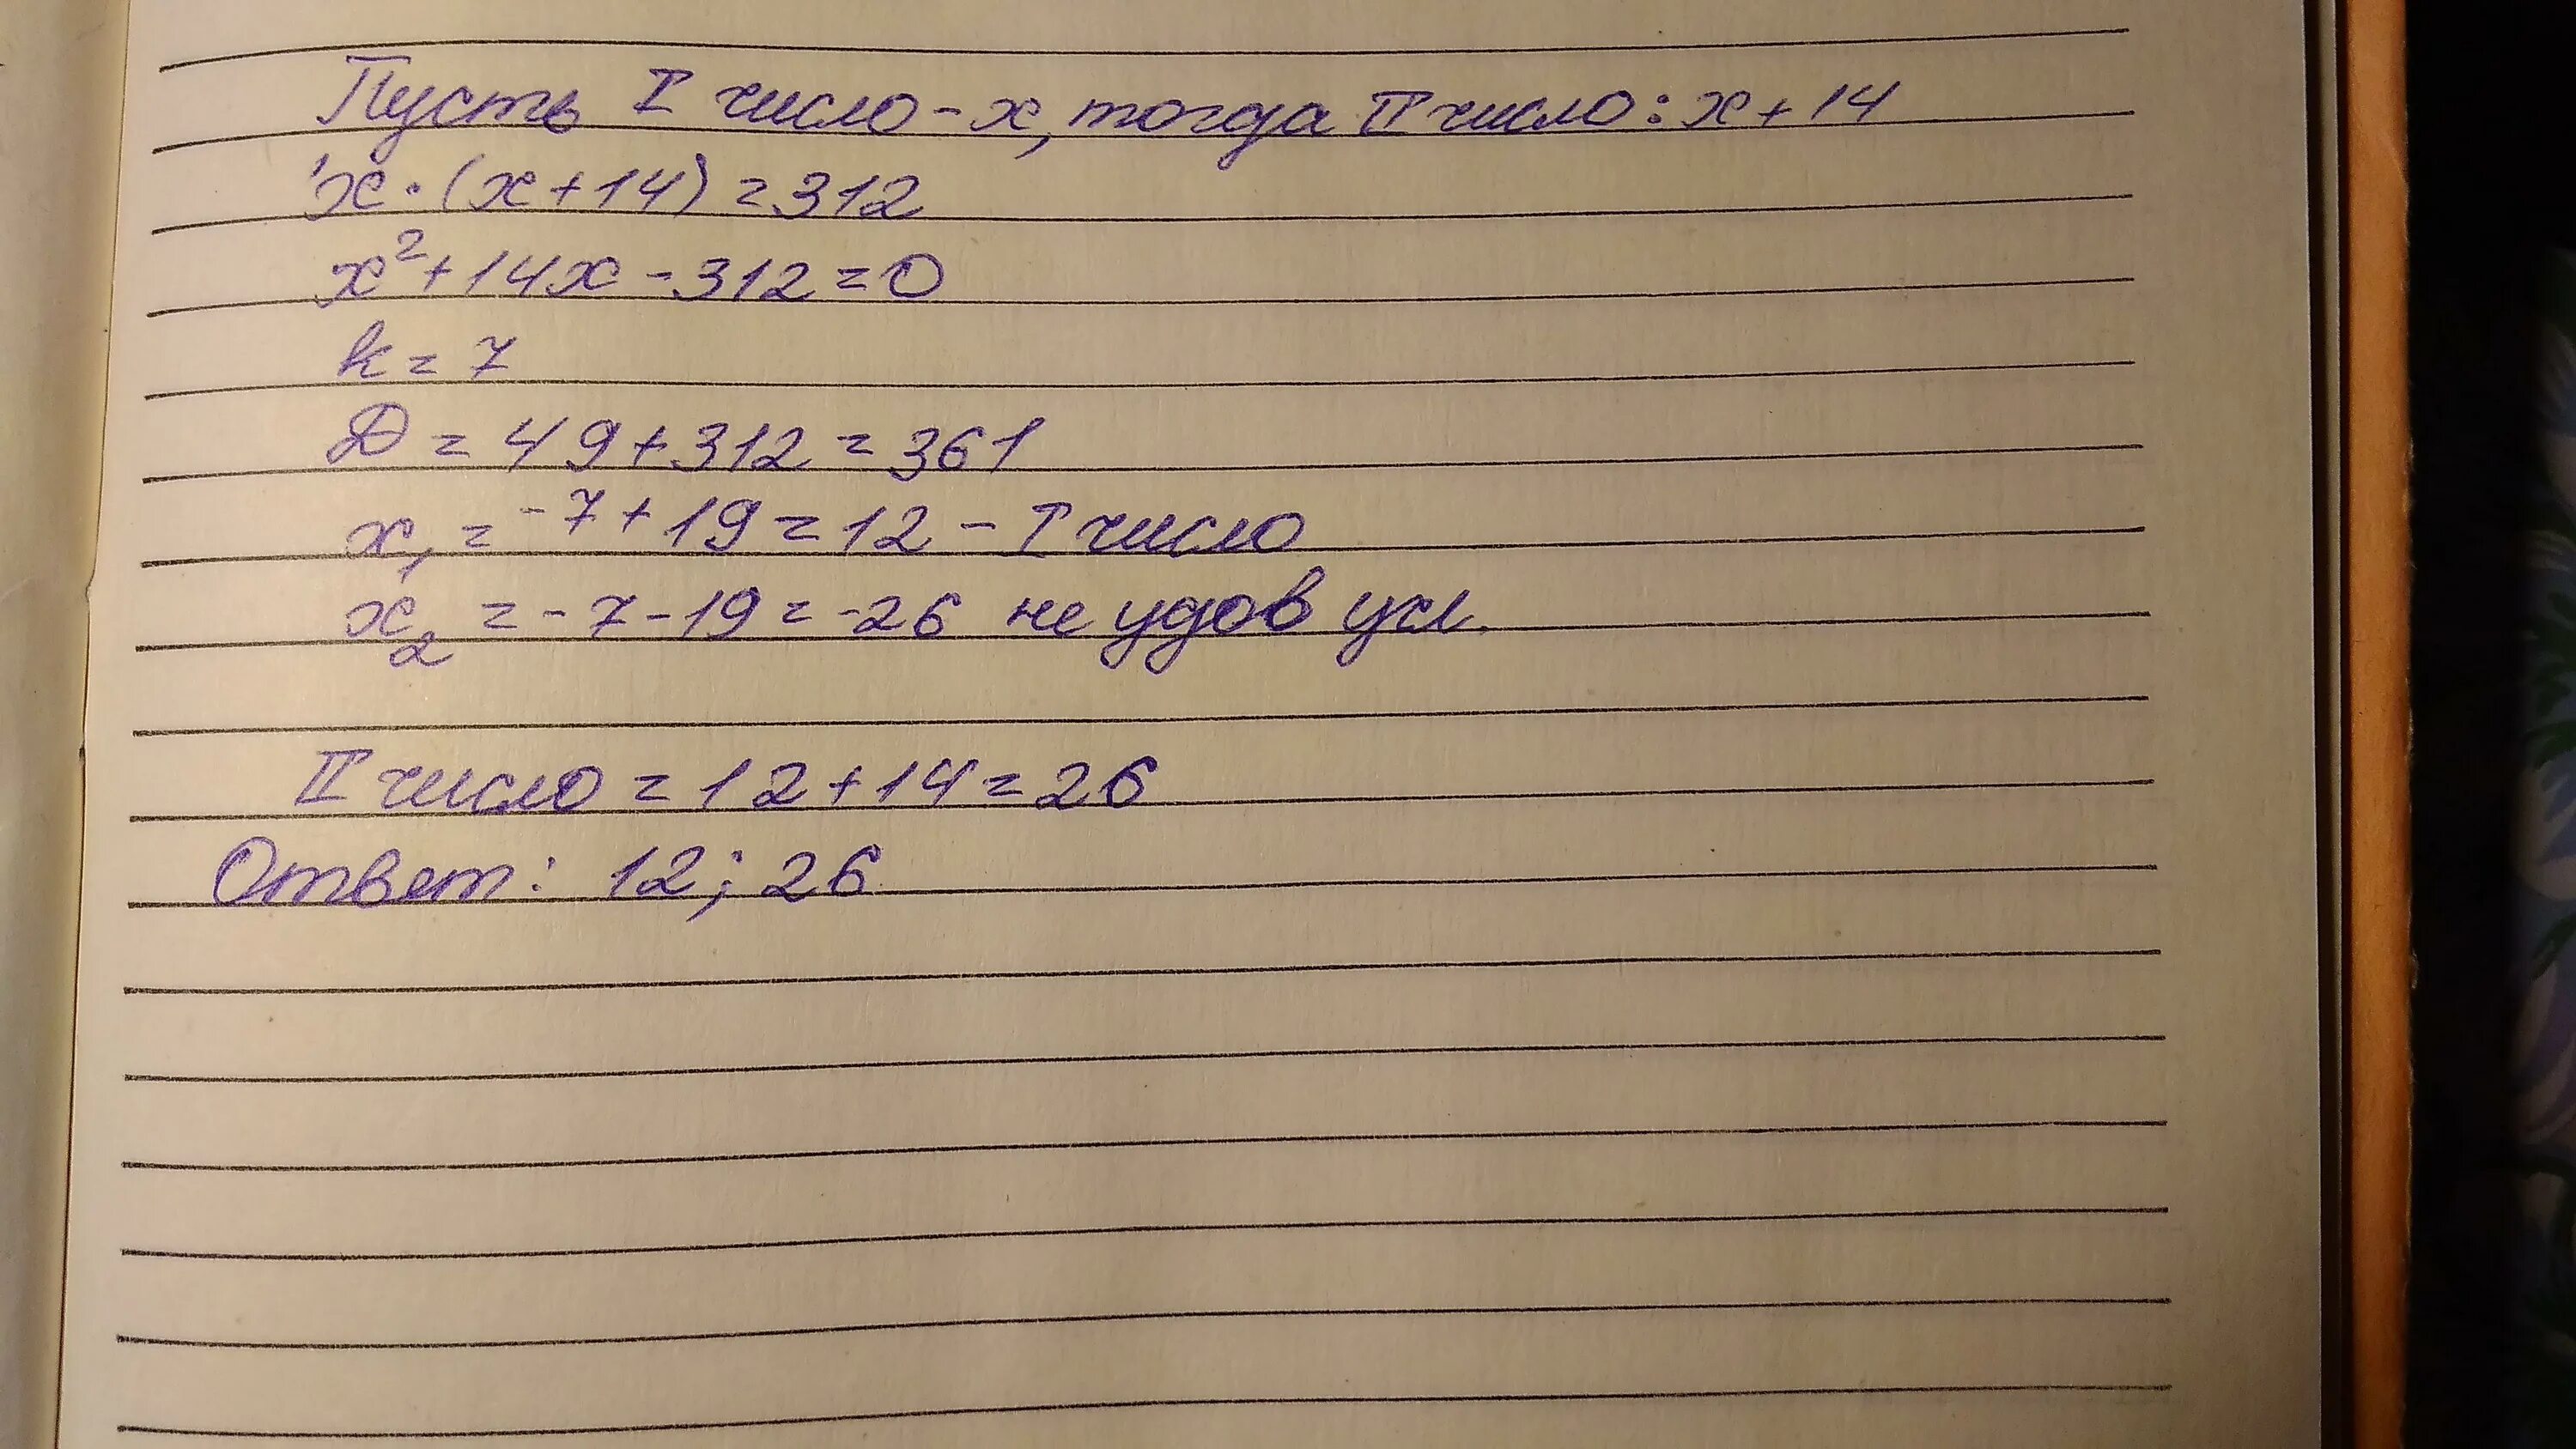 Пусть I число - x, тогда II число: x + 14
x · (x + 14) = 312
x² + 14x - 312 = 0
k = 7
D = 49 + 312 = 361
x₁ = -7 + 19 = 12 - I число
x₂ = -7 - 19 = -26 не удов усл.
II число = 12 + 14 = 26
Ответ: 12; 26